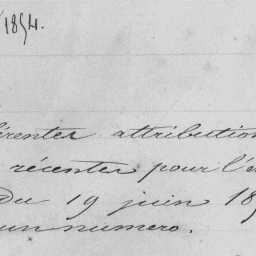 1894.
férentes attribution
récentes pour l'e
Du 19 juin 18
un numero.